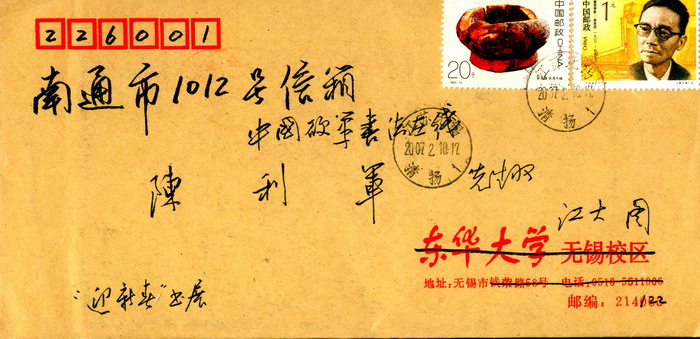 226001
20分
中国邮政
CHINA
1元
中国邮政
南通市1012号信箱
中國硬筆書法在線
2007.2.10.12
2007.2.10.17
陳利軍 先生收
江大 周
东华大学 无锡校区
地址:无锡市钱荣路68号 电话:0510-5511006
邮编:214122
"迎新春"书展